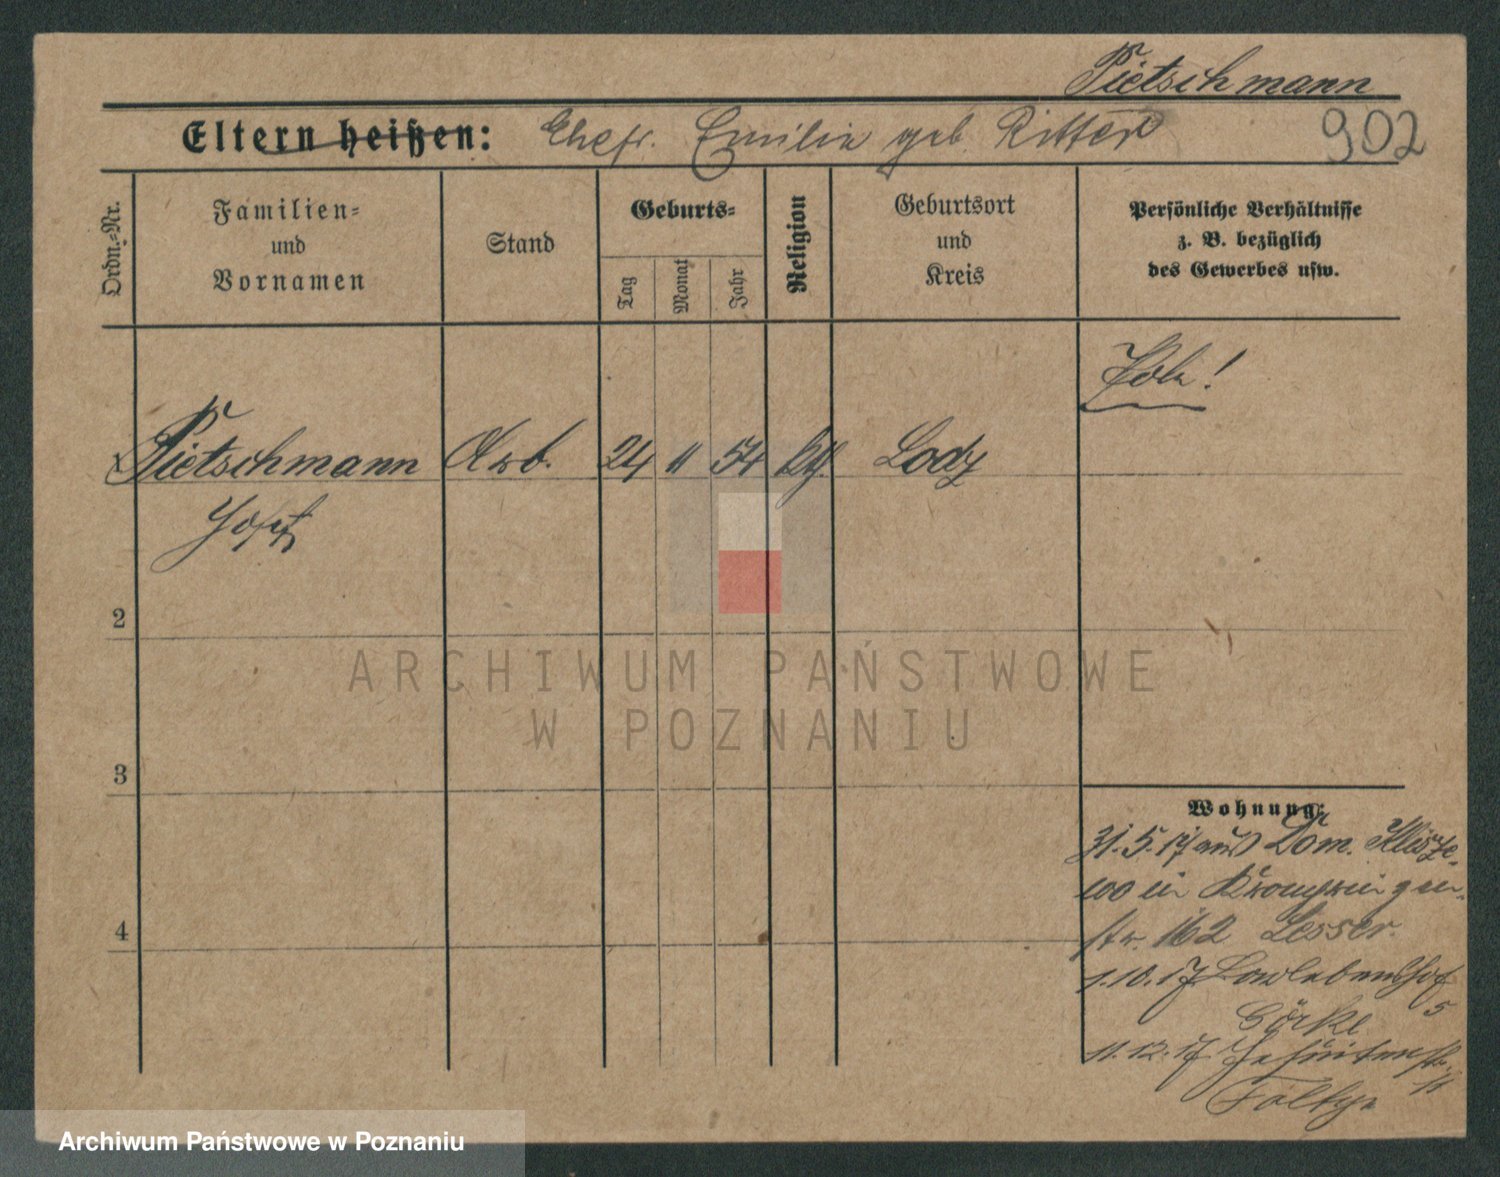 Pietschmann
Eltern heißen: Ehefr. Emilie geb. Ritter 902
Ordn.-Nr.
Familien-
und
Vornamen
Stand
Geburts-
Tag
Monat
Jahr
Religion
Geburtsort
und
Kreis
Persönliche Verhältnisse
z. B. bezüglich
des Gewerbes usw.
Pole!
Pietschmann Arb. 24 11 54 Lodz
Josef
2
3
4
Wohnung:
31.5.17 aus Dom. Klisze-
wo in Kronprinzen-
str. 162 Lesser.
1.10.17
5
Görke
11.12.17 Jesuitenstr.
11
ARCHIWUM PAŃSTWOWE
W POZNANIU
Archiwum Państwowe w Poznaniu